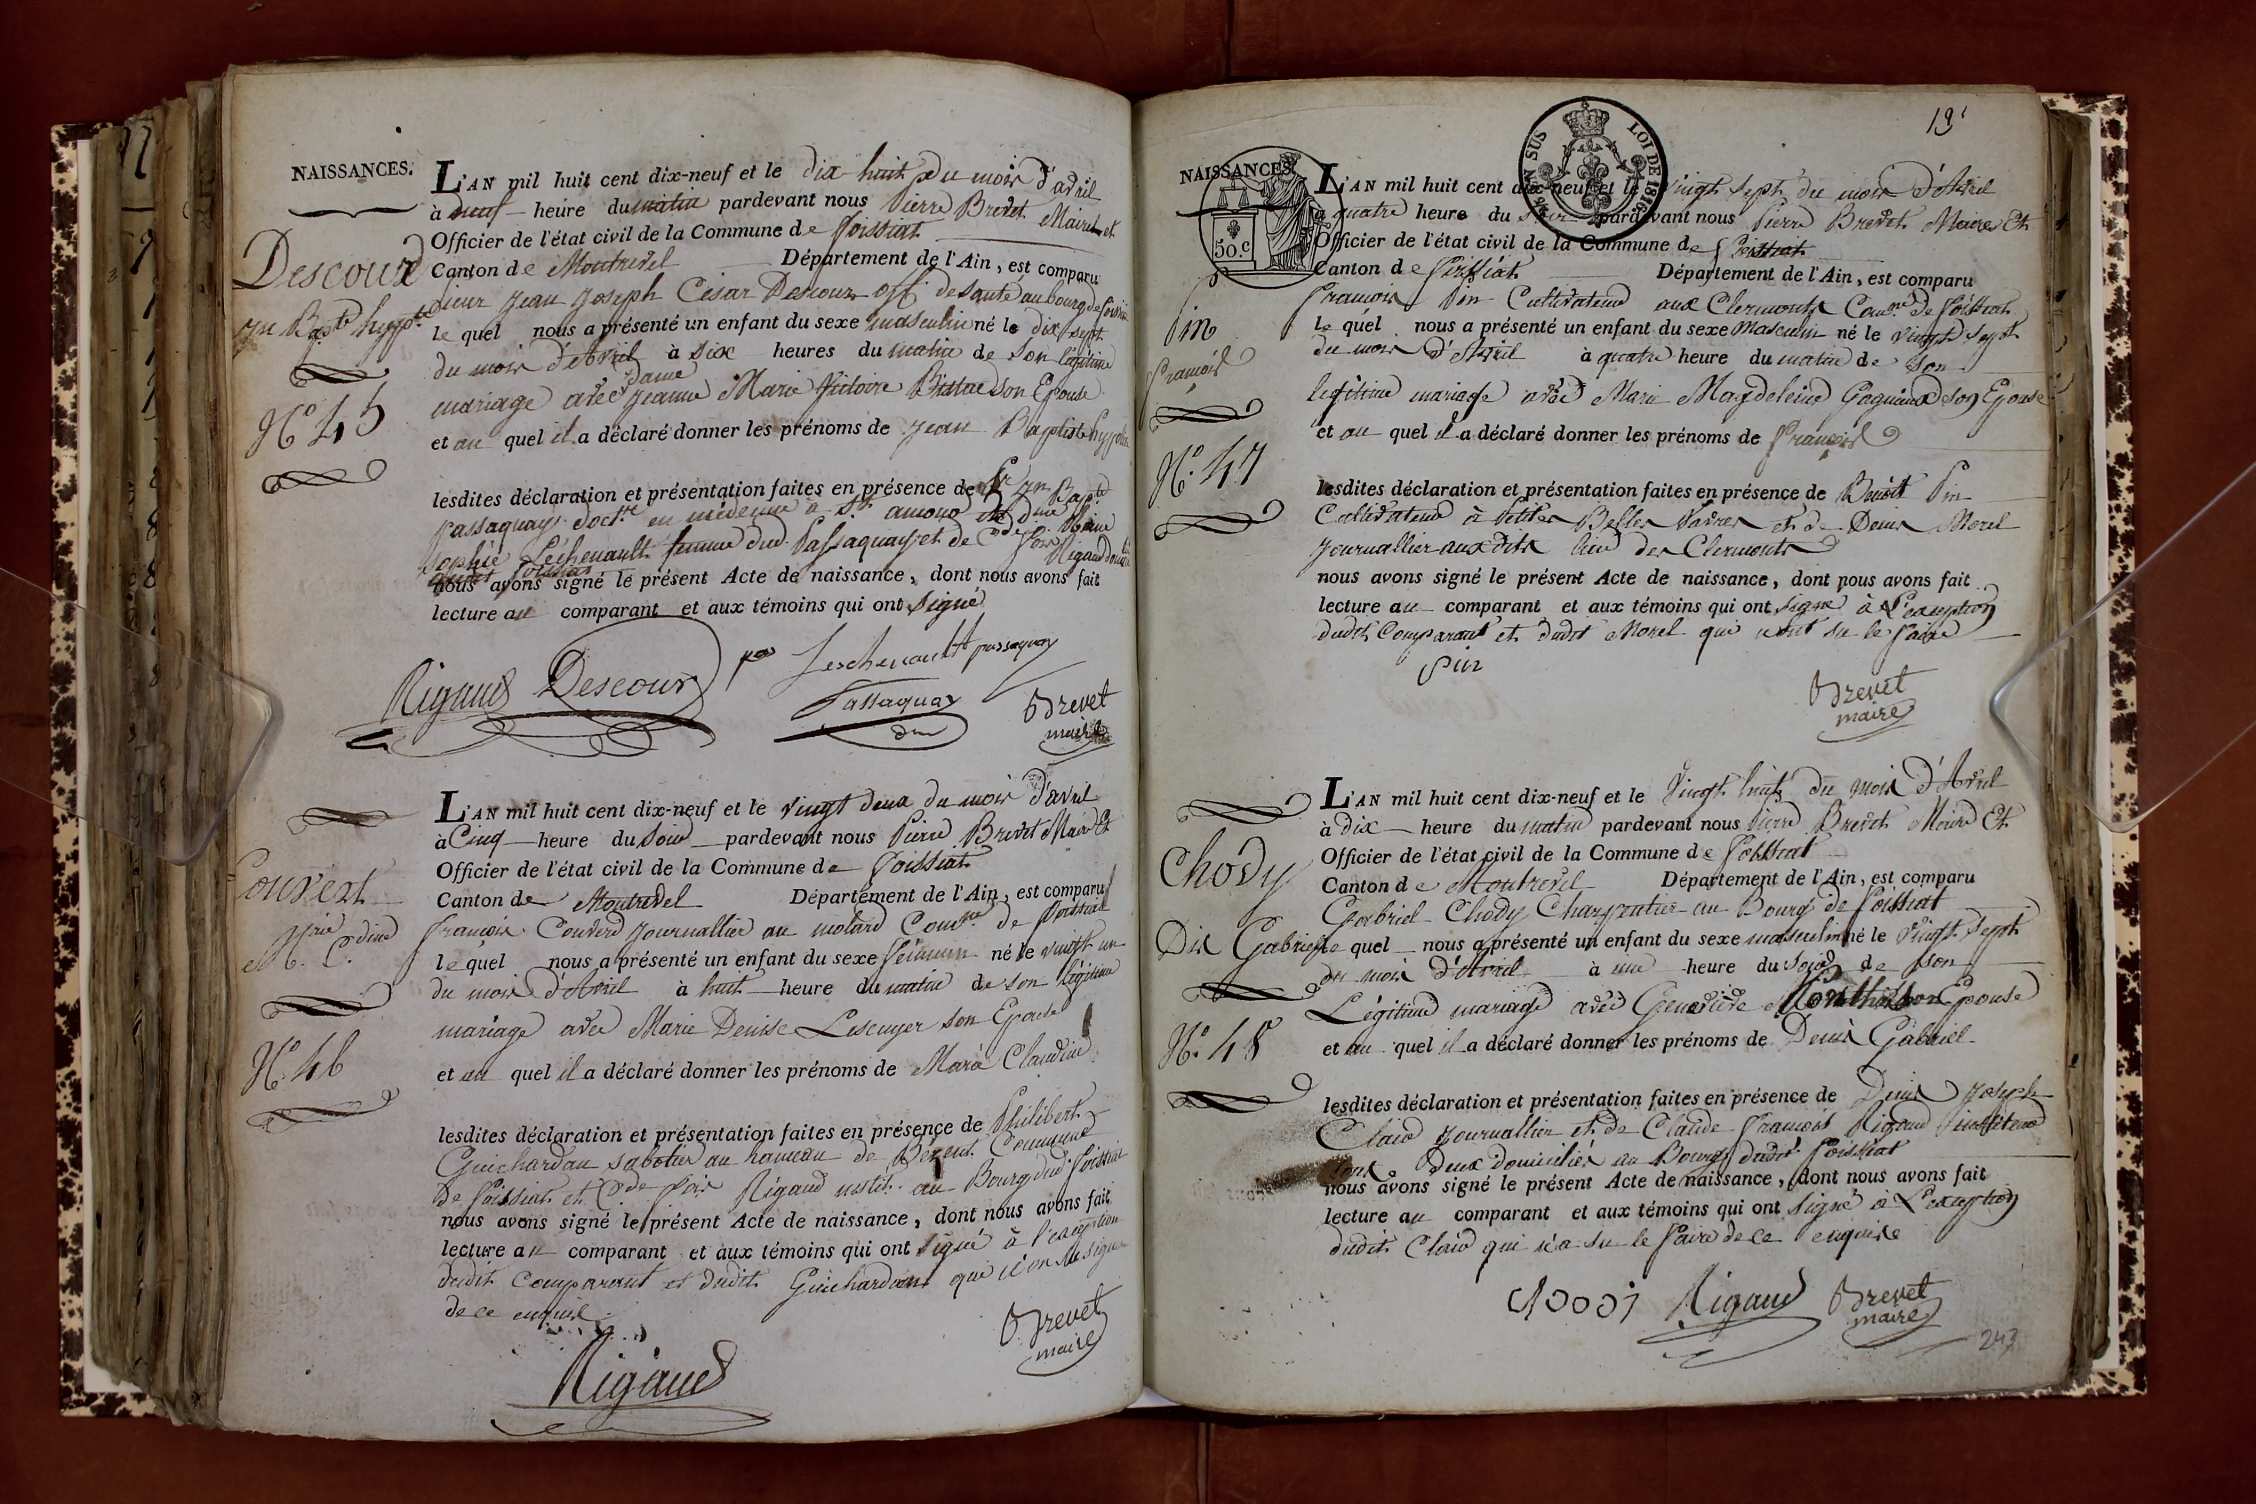 NAISSANCES.
L'AN mil huit cent dix-neuf et le dix huit du mois d'avril
à neuf heure du matin pardevant nous Pierre Brevet Maire et
Officier de l'état civil de la Commune de foissiat
Descour
Canton de Montrevel Département de l'Ain, est comparu
Sieur Jean Joseph Cesar Descour off. de Santé au bourg de foissiat
Jn Bapte hyppte
le quel nous a présenté un enfant du sexe masculin né le dix sept
du mois d'Avril à Six heures du matin de son légitime
Dame
mariage avec Jeanne Marie Victoire son Epouse
N° 45
et au quel il a déclaré donner les prénoms de Jean Baptiste hypolite
lesdites déclaration et présentation faites en présence de Sr Jn Bapte
Passaquay doctre en médecine à St amour et de dme
Sophie Léchenault femme dud. Passaquay et de Cde fois Rigaud
audit foissiat
nous avons signé le présent Acte de naissance, dont nous avons fait
lecture au comparant et aux témoins qui ont Signé
Leschenault passaquay
Rigaud Descour
Passaquay
Brevet
dm
maire
L'AN mil huit cent dix-neuf et le vingt deux du mois d'avril
à Cinq heure du Soir pardevant nous Pierre Brevet Maire Et
Officier de l'état civil de la Commune de foissiat
Couvert
Canton de Montrevel Département de l'Ain, est comparu
Mrie Cdine
francois Couverd Journallier au molard Comne de foissiat
le quel nous a présenté un enfant du sexe féminin né le vingt un
du mois d'Avril à huit heure du matin de son légitime
mariage avec Marie Denise Lescuyer son Epouse
N° 46
et au quel il a déclaré donner les prénoms de Marie Claudine
lesdites déclaration et présentation faites en présence de Philibert
Guichardan sabotier au hameau de Commune
de foissiat et Cde fois Rigaud instit. au Bourg dud. foissiat
nous avons signé le présent Acte de naissance, dont nous avons fait
lecture au comparant et aux témoins qui ont Signé à l'exception
dudit comparant et dudit Guichardan qui n'ont su signer
de ce enquis
Brevet
maire
Rigaud
19
TIMBRE EN SUS
LOI DE 1816
50.c
NAISSANCES.
L'AN mil huit cent dix-neuf et le vingt sept du mois d'Avril
à quatre heure du Soir pardevant nous Pierre Brevet Maire Et
Officier de l'état civil de la Commune de foissiat
Canton de foissiat Département de l'Ain, est comparu
Pin
francois Pin Cultivateur aux Clermonts Comne de foissiat
le quel nous a présenté un enfant du sexe Masculin né le vingt sept
francois
du mois d'Avril à quatre heure du matin de son
legitime mariage avec Marie Magdeleine son Epouse
et au quel il a déclaré donner les prénoms de francois
N° 47
lesdites déclaration et présentation faites en présence de Benoit Pin
Cultivateur à Petites Belles Vavres et de Denis Morel
Journallier aux dits lieu des Clermonts
nous avons signé le présent Acte de naissance, dont nous avons fait
lecture au comparant et aux témoins qui ont signé à L'exception
dudit Comparant et dudit Morel qui n'ont su le faire
Pin
Brevet
maire
L'AN mil huit cent dix-neuf et le Vingt huit du mois d'Avril
à dix heure du matin pardevant nous Pierre Brevet Maire Et
Officier de l'état civil de la Commune de foissiat
Chody
Canton de Montrevel Département de l'Ain, est comparu
Gabriel Chody Charpentier au Bourg de foissiat
Dis Gabriel
le quel nous a présenté un enfant du sexe masculin né le Vingt sept
du mois d'Avril à une heure du Soir de son
Légitime mariage avec Genevieve Epouse
N° 48
et au quel il a déclaré donner les prénoms de Denis Gabriel
lesdites déclaration et présentation faites en présence de Denis Joseph
Claid Journallier et de Claude francois Rigaud instituteur
tous deux domiciliés au Bourg dudit foissiat
nous avons signé le présent Acte de naissance, dont nous avons fait
lecture au comparant et aux témoins qui ont signé à L'exception
dudit Claid qui n'a su le faire de ce enquise
Rigaud Brevet
maire
243